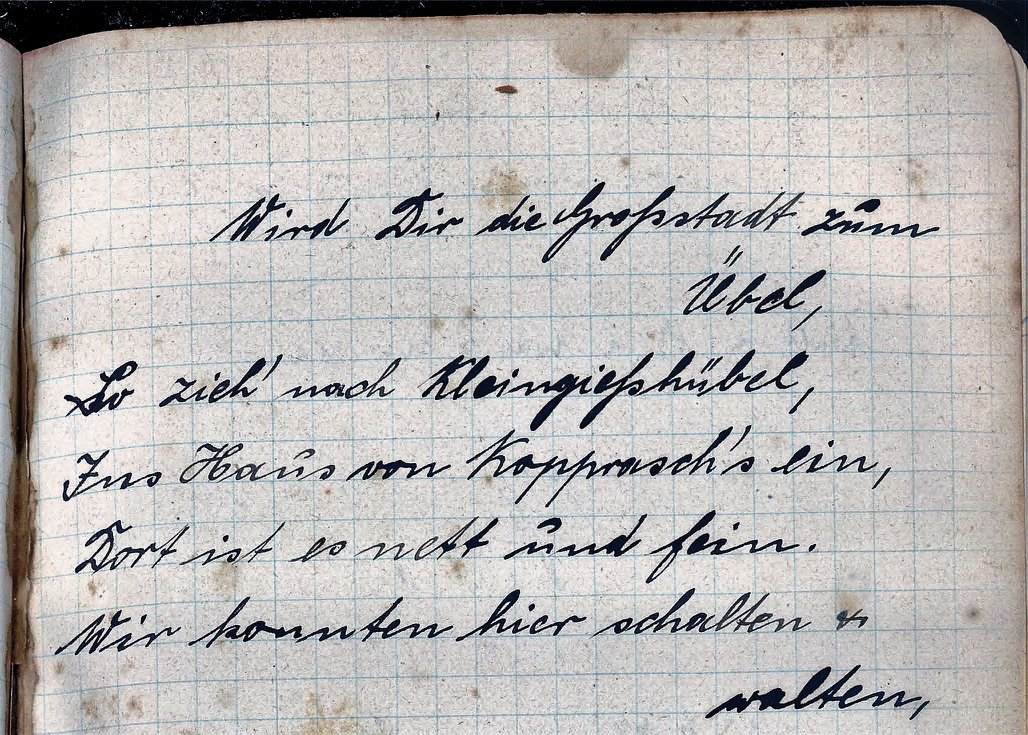 Wird Dir die Großstadt zum
Übel,
So zieh' nach Kleingießhübel,
Ins Haus von Kopprasch's ein,
Dort ist es nett und fein.
Wir konnten hier schalten &
walten,